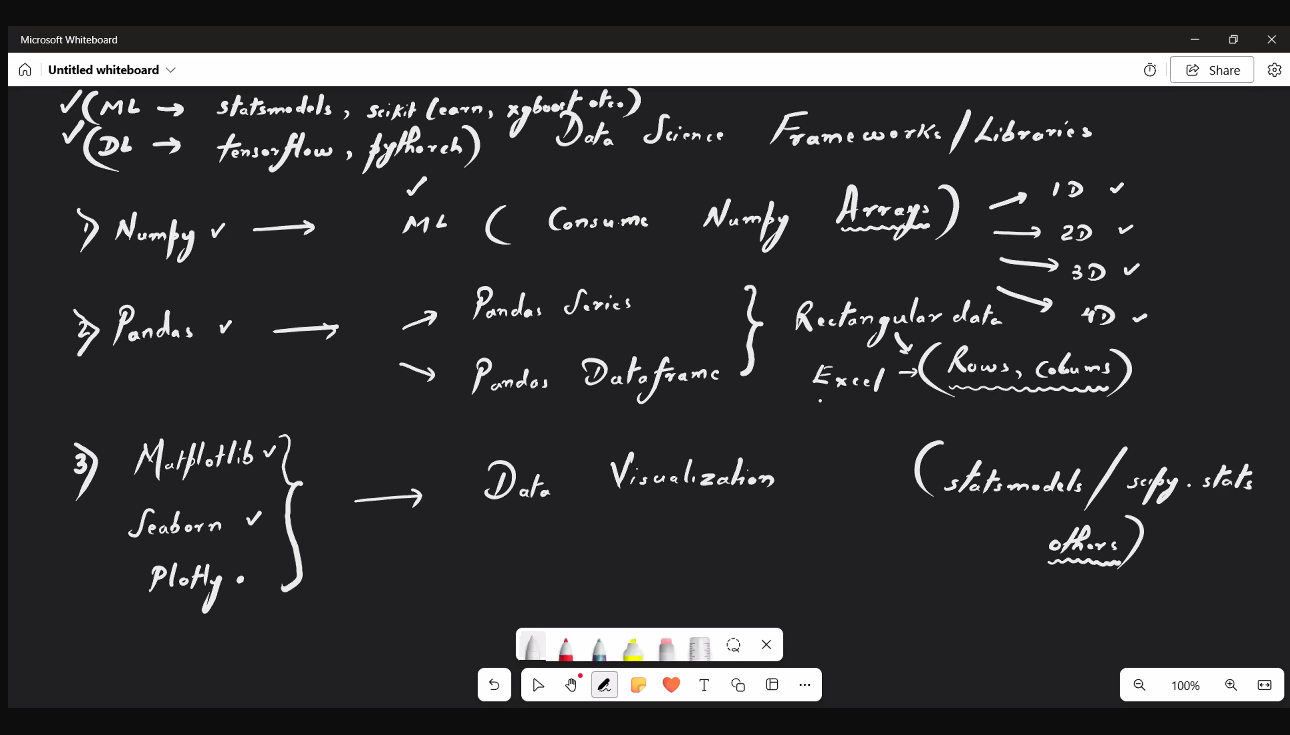 Microsoft Whiteboard
Untitled whiteboard
Share
✓(ML → statsmodels, scikit learn, xgboost etc.)
✓(DL → tensorflow, pytorch)
Data Science Frameworks/Libraries
1) Numpy ✓ → ML ✓ (Consume Numpy Arrays) → 1D ✓
→ 2D ✓
→ 3D ✓
→ 4D ✓
2) Pandas ✓ → → Pandas Series } Rectangular data
→ Pandas Dataframe
Excel → (Rows, columns)
3) Matplotlib ✓
Seaborn ✓
Plotly .
} → Data Visualization
(statsmodels/scipy.stats
others)
100%